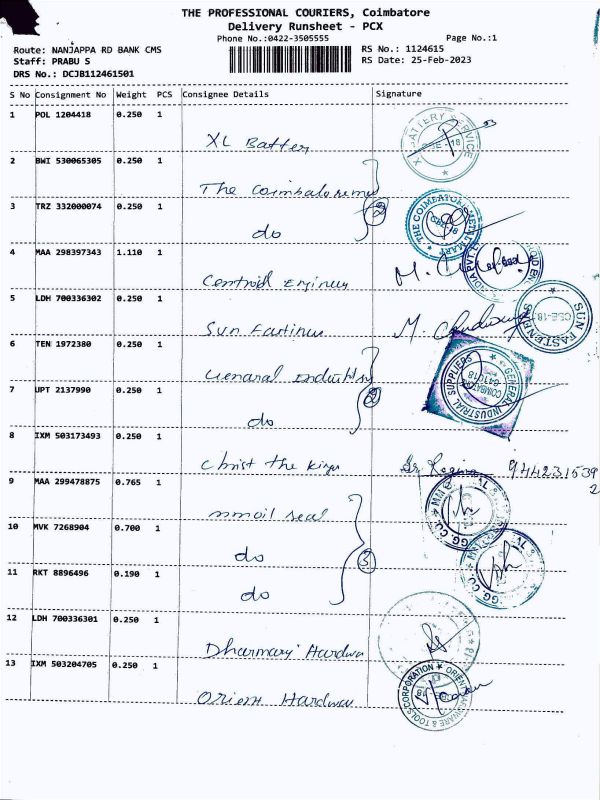 THE PROFESSIONAL COURIERS, Coimbatore
Delivery Runsheet - PCX
Phone No.:0422-3505555
Page No.:1
Route: NANJAPPA RD BANK CMS
RS No.: 1124615
Staff: PRABU S
RS Date: 25-Feb-2023
DRS No.: DCJB112461501
S No Consignment No Weight PCS Consignee Details Signature
1 POL 1204418 0.250 1
XL Battery
X BATTERY SERVICE
2 BWI 530065305 0.250 1
The Coimbatore
3 TRZ 332000074 0.250 1
do
2
THE COIMBATORE METAL MART
CBE-18
4 MAA 298397343 1.110 1
5 LDH 700336302 0.250 1
Sun
SUN FASTENERS
CBE-18
6 TEN 1972380 0.250 1
7 UPT 2137990 0.250 1
do
2
GENERAL INDUSTRIAL SUPPLIERS
8 IXM 503173493 0.250 1
Christ the King
9 MAA 299478875 0.765 1
mm oil seal
10 MVK 7268904 0.700 1
do
11 RKT 8896496 0.190 1
do
3
12 LDH 700336301 0.250 1
13 IXM 503204705 0.250 1
Orient Hardwa
ORIENT HARDWARE & TOOLS CORPORATION